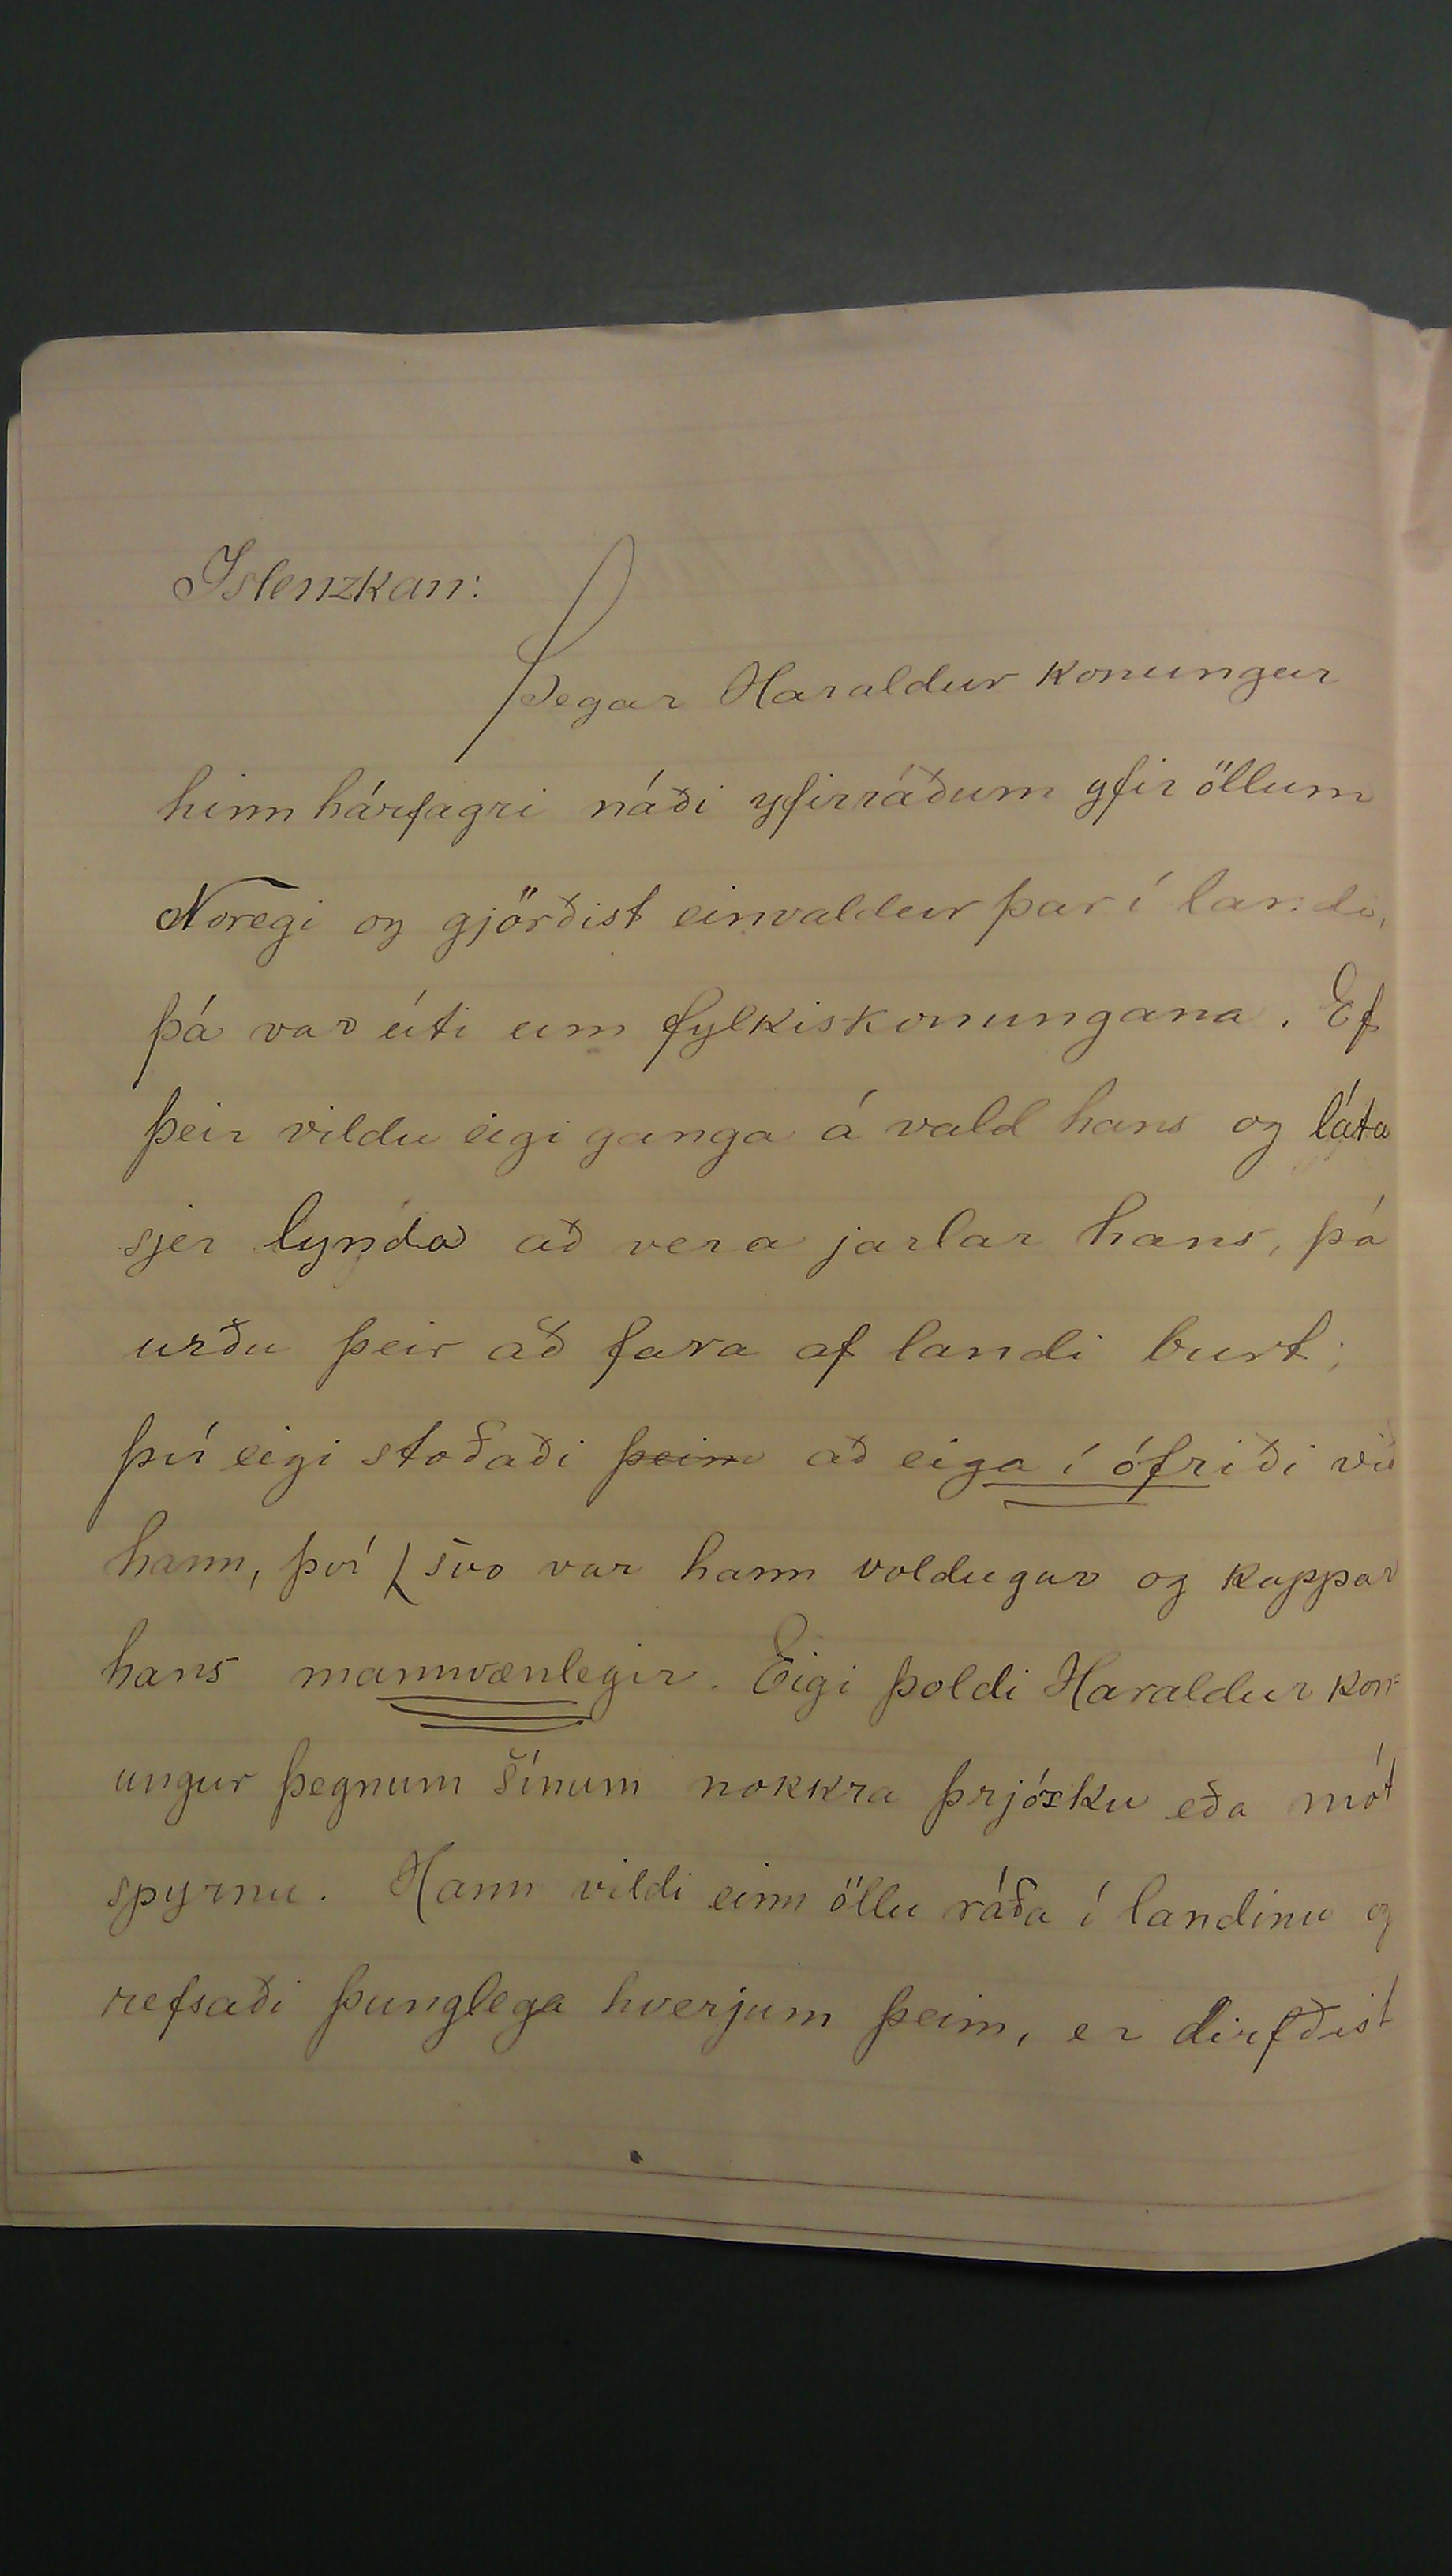 Islenzkan:
Þegar Haraldur konungur
hinn hárfagri náði yfirráðum yfir öllum
Noregi og gjörðist einvaldur þar í landi,
þá var úti um fylkiskonungana. Ef
þeir vildu eigi ganga á vald hans og láta
sjer lynda að vera jarlar hans, þá
urðu þeir að fara af landi burt;
því eigi stoðaði þeim að eiga í ófriði við
hann, því svo var hann voldugur og kappar
hans mannvænlegir. Eigi þoldi Haraldur kon-
ungur þegnum sínum nokkra þrjózku eða mót
spyrnu. Hann vildi einn öllu ráða í landinu og
refsaði þunglega hverjum þeim, er dirfðist